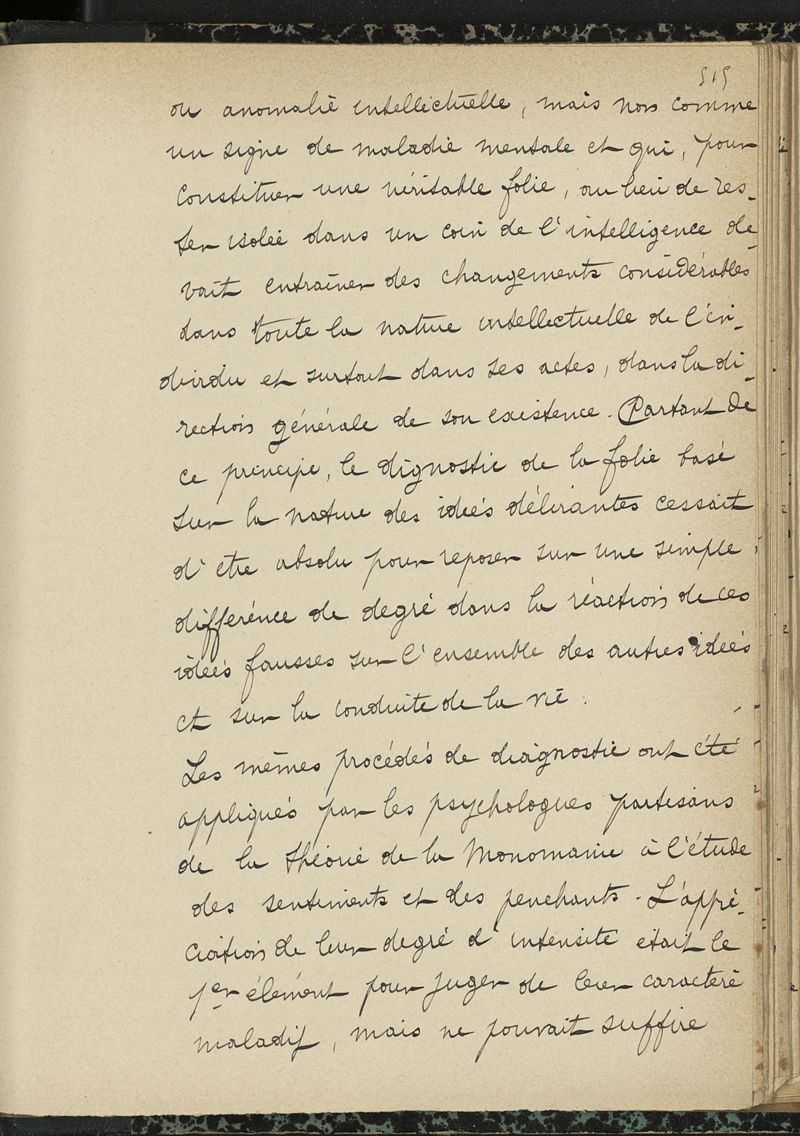 515
ou anomalie intellectuelle, mais non comme
un signe de maladie mentale et qui, pour
constituer une véritable folie, au lieu de res-
ter isolée dans un coin de l'intelligence de-
vait entraîner des changements considérables
dans toute la nature intellectuelle de l'in-
dividu et surtout dans ses actes, dans la di-
rection générale de son existence. Partant de
ce principe, le dignostic de la folie basé
sur la nature des idées délirantes cessait
d'être absolu pour reposer sur une simple
différence de degré dans la réaction de ces
idées fausses sur l'ensemble des autres idées
et sur la conduite de la vie.
Les mêmes procédés de diagnostic ont été
appliqués par les psychologues partisans
de la théorie de la Monomanie à l'étude
des sentiments et des penchants. L'appré-
ciation de leur degré d'intensité était le
1er élément pour juger de leur caractère
maladif, mais ne pouvait suffire